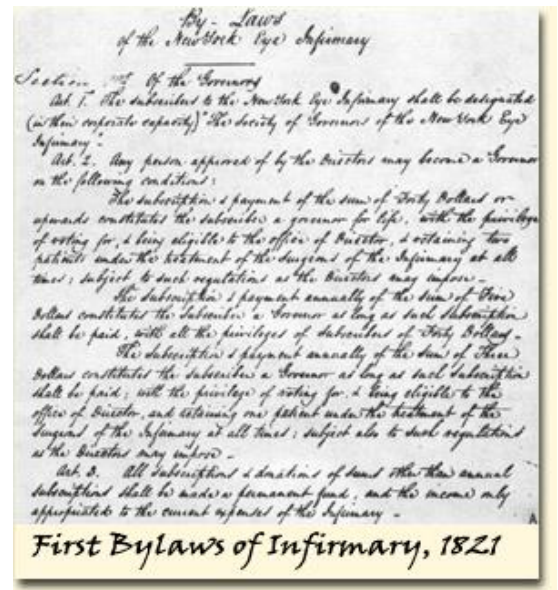 By-Laws
of the New York Eye Infirmary
Section 1st. Of the Governors
Art. 1. The subscribers to the New York Eye Infirmary shall be designated
(in their corporate capacity) "The Society of Governors of the New York Eye
Infirmary".
Art. 2. Any person approved of by the Directors may become a Governor
on the following conditions:
The subscription & payment of the sum of Forty Dollars or
upwards constitutes the subscriber a governor for life, with the privilege
of voting for, & being eligible to the office of Director, & retaining two
patients under the treatment of the surgeons of the Infirmary at all
times; subject to such regulations as the Directors may impose.-
The subscription & payment annually of the sum of Five
Dollars constitutes the subscriber a Governor as long as such subscription
shall be paid, with all the privileges of subscribers of Forty Dollars.-
The subscription & payment annually of the sum of Three
Dollars constitutes the subscriber a Governor as long as such subscription
shall be paid; with the privilege of voting for, & being eligible to the
office of Director, and retaining one patient under the treatment of the
surgeons of the Infirmary at all times; subject also to such regulations
as the Directors may impose.-
Art. 3. All subscriptions & donations of sums other than annual
subscriptions shall be made a permanent fund; and the income only
appropriated to the current expenses of the Infirmary.-
First Bylaws of Infirmary, 1821